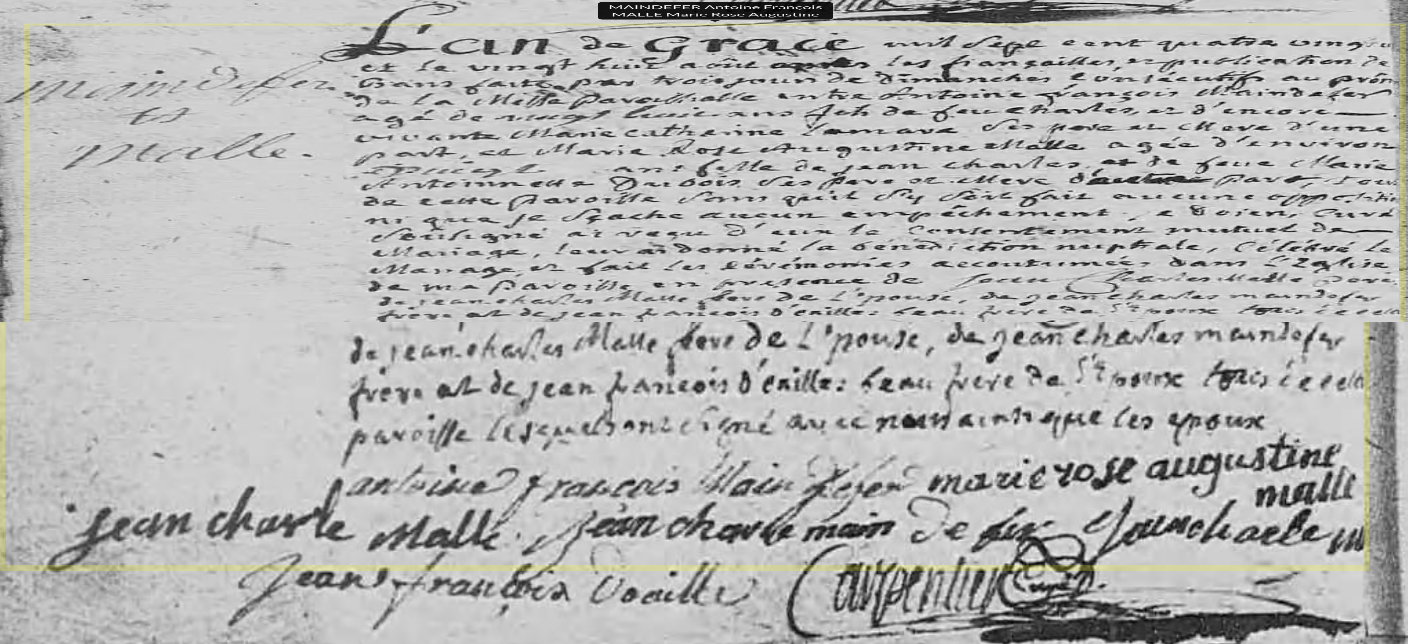 MAINDEFER Antoine François
MALLE Marie Rose Augustine
L'an de Grace mil sept cent quatre vingt
et le vingt huit août après les fiançailles, et publication de
Bans faite par trois jour de dimanches consécutifs au prône
de la Messe paroissialle entre Antoine François Maindefer
agé de vingt huit ans fils de feu Charles, et d'encore
vivante Marie Catherine Lamare ses pere et Mere d'une
part, et Marie Rose Augustine Malle agée d'environ
vingt ans fille de jean charles, et de feue Marie
Antoinette Dubois ses pere et Mere d'autre part, tous
de cette paroisse sans qu'il s'y soit fait aucune opposition
ni que je sçache aucun empêchement, Curé
soussigné ai reçu d'eux le consentement mutuel de
Mariage, leur ai donné la bénédiction nuptiale, célébré le
Mariage, et fait les cérémonies accoutumées dans l'Eglise
de ma paroisse en présence de Jean Charles Malle pere
de jean charles Malle frere de L'épouse, de jean charles maindefer
frère et de jean francois d'oailles beau frere de l'épouse tous de cette
maindefer
et
malle.
de jean charles Malle frere de L'épouse, de jean charles maindefer
frère et de jean francois d'oailles beau frere de l'Epouse tous de cette
paroisse lesquels ont signé avec nous ainsi que les epoux
antoine françois Main defer marie rose augustine
malle
jean charle Malle jean charle main de fer Jean charle m
jean françois doaille Carpentier Curé